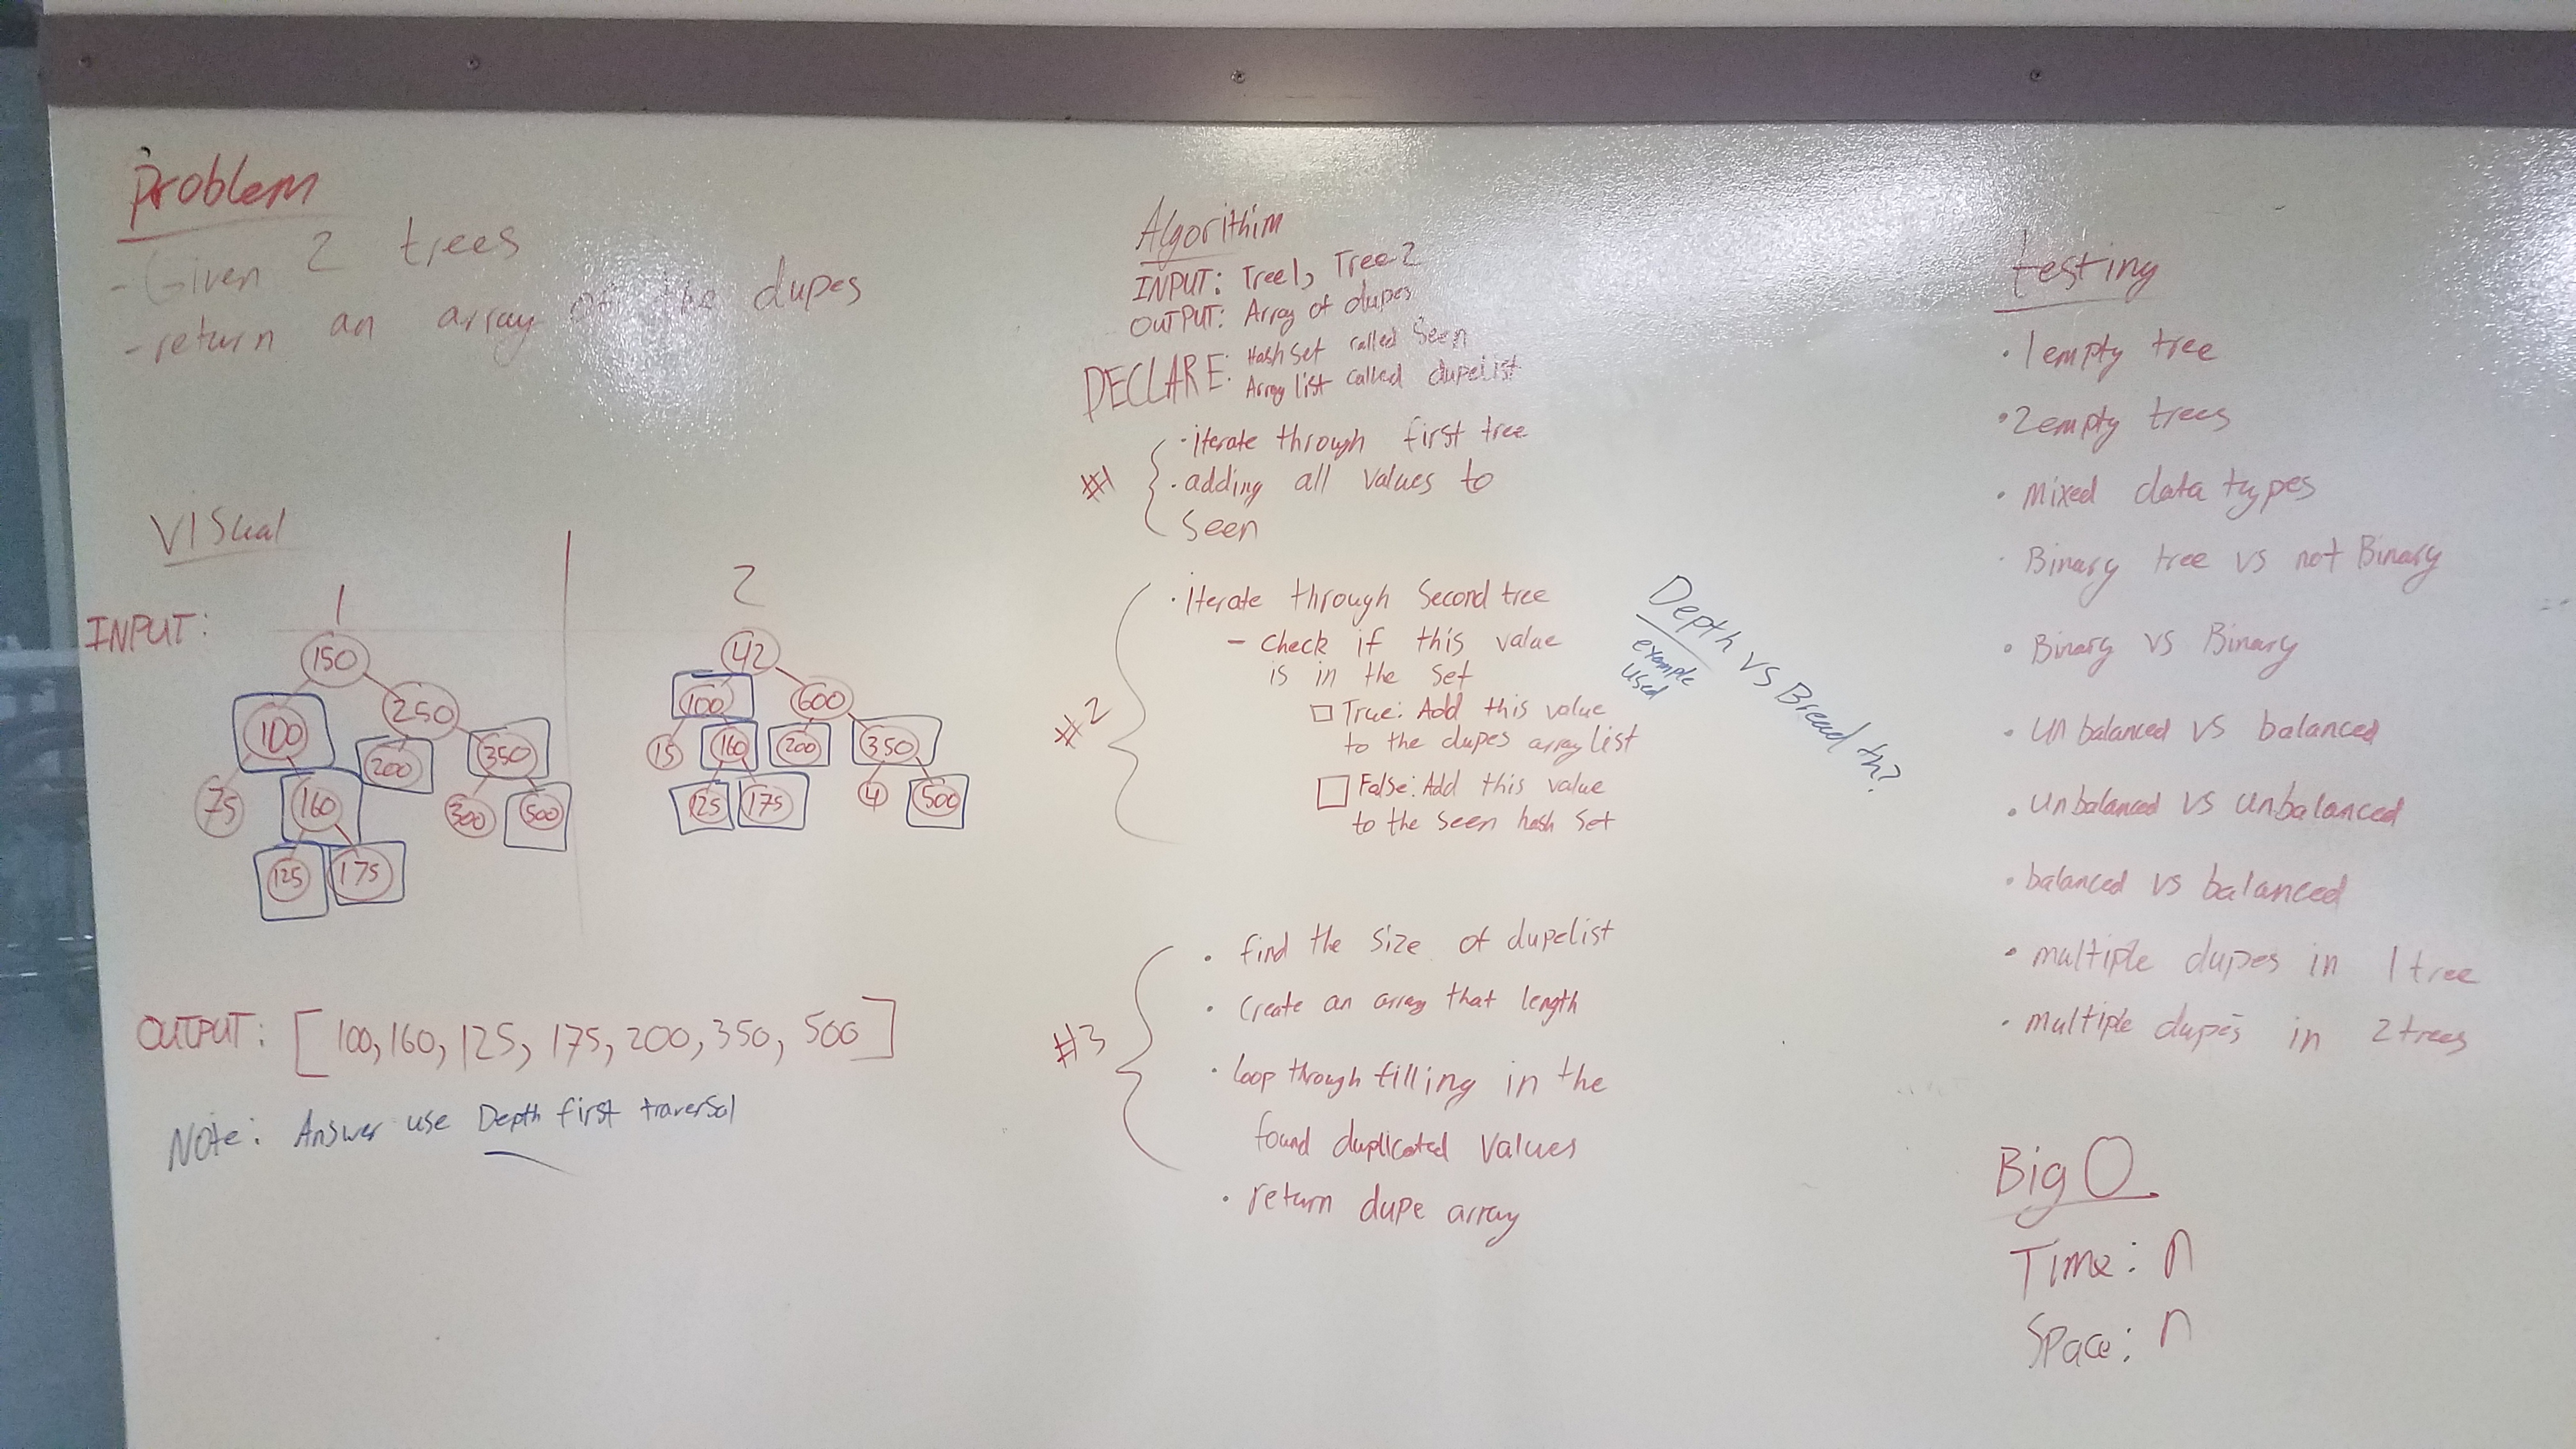 Problem
- Given 2 trees
- return an array of the dupes
VISual
INPUT:
1
150
100
250
75
160
200
350
125
175
300
500
2
42
100
600
15
160
200
350
125
175
4
500
OUTPUT: [100, 160, 125, 175, 200, 350, 500]
Note: Answer use Depth first traversal
Algorithim
INPUT: Tree1, Tree2
OUTPUT: Array of dupes
DECLARE: Hash Set called Seen
Array list called dupelist
#1
· iterate through first tree
· adding all values to
Seen
#2
· iterate through Second tree
- Check if this value
is in the set
True: Add this value
to the dupes array list
False: Add this value
to the seen hash set
Depth vs Breadth?
example
used
#3
· find the size of dupelist
· Create an array that length
· loop through filling in the
found duplicated values
· return dupe array
testing
· 1 empty tree
· 2 empty trees
· Mixed data types
· Binary tree vs not Binary
· Binary vs Binary
· un balanced vs balanced
· unbalanced vs unbalanced
· balanced vs balanced
· multiple dupes in 1 tree
· multiple dupes in 2 trees
Big O
Time: n
Space: n